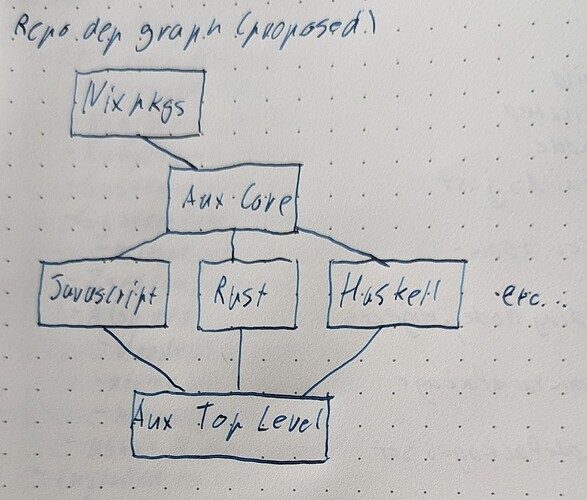 Repo dep graph (proposed)
Nixpkgs
Aux Core
Javascript Rust Haskell etc...
Aux Top Level